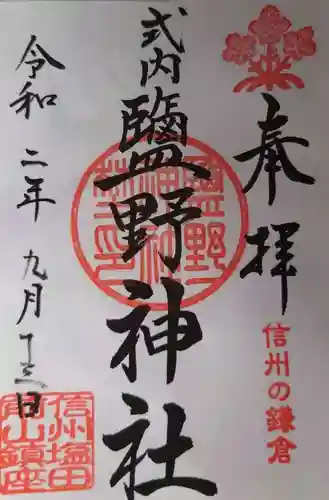 奉拝
信州の鎌倉
式内
鹽野神社
令和二年九月十三日
信州塩田
前山鎮座